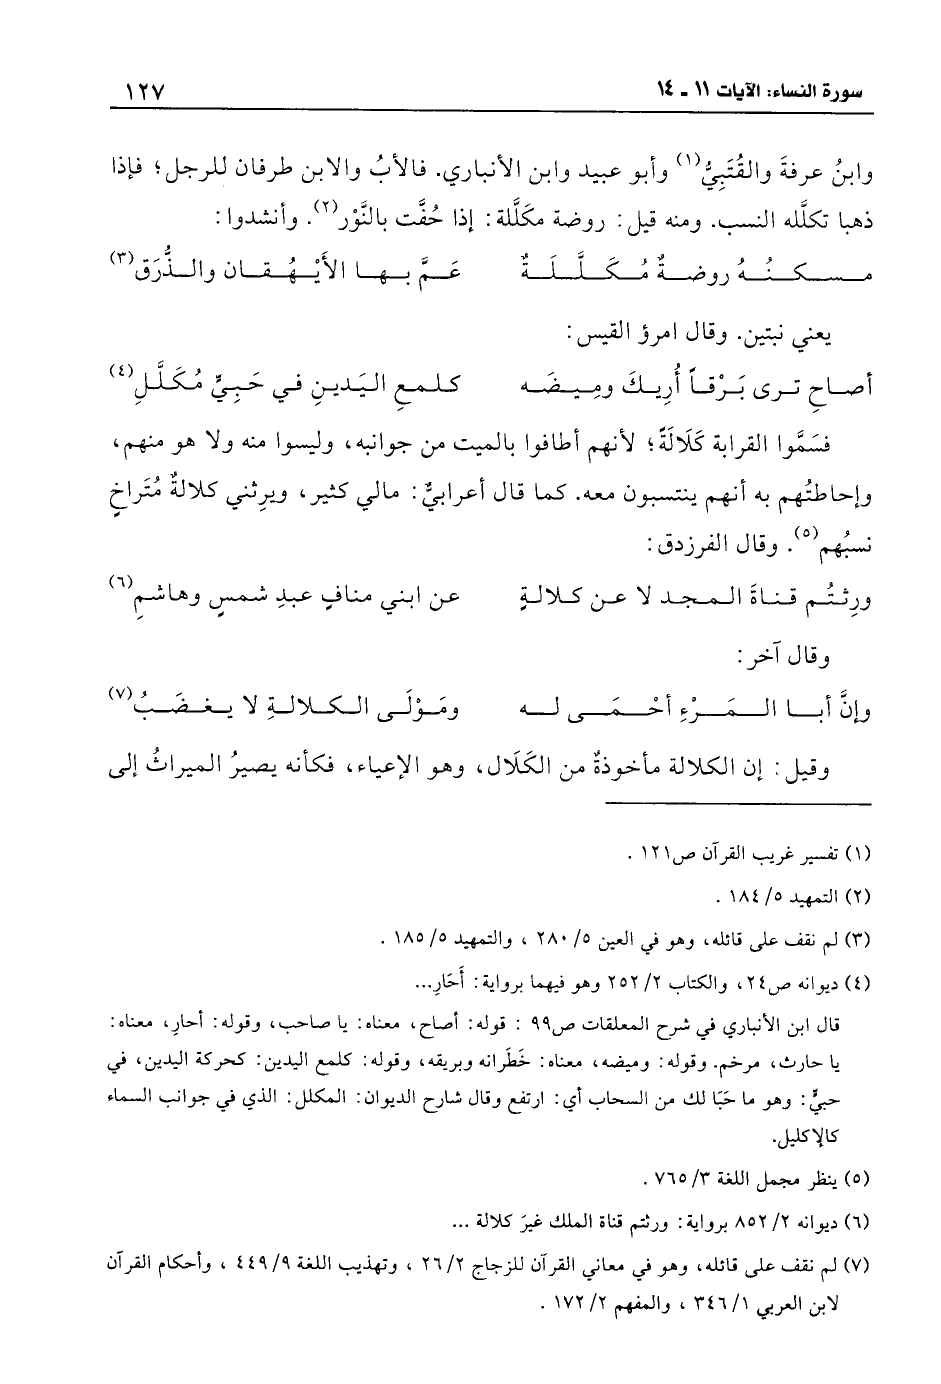 سورة النساء: الآيات ١١ ـ ١٤ ١٢٧
وابنُ عرفةَ والقُتَبِيُّ(١) وأبو عبيد وابن الأنباري. فالأبُ والابن طرفان للرجل؛ فإذا
ذهبا تكلَّله النسب. ومنه قيل: روضة مكَلَّلة: إذا حُفَّت بالنَّوْر(٢). وأنشدوا:
مسكنُه روضةٌ مُكَلَّلَةٌ عَمَّ بها الأَيْهُقان والذُّرَق(٣)
يعني نبتين. وقال امرؤ القيس:
أصاحِ ترى بَرْقاً أُرِيكَ ومِيضَه كلمعِ اليَدينِ في حَبِيٍّ مُكَلَّلِ(٤)
فسَمَّوا القرابة كَلَالَةً؛ لأنهم أطافوا بالميت من جوانبه، وليسوا منه ولا هو منهم،
وإحاطتُهم به أنهم ينتسبون معه. كما قال أعرابيٌّ: مالي كثير، ويرِثني كلالةٌ مُتَراخٍ
نسبُهم(٥). وقال الفرزدق:
ورِثتُم قناةَ المجد لا عن كلالةٍ عن ابني منافٍ عبدِ شمسٍ وهاشمِ(٦)
وقال آخر:
وإنَّ أبا المَرْءِ أحْمَى له ومَوْلَى الكلالةِ لا يغضَبُ(٧)
وقيل: إن الكلالة مأخوذةٌ من الكَلَال، وهو الإعياء، فكأنه يصيرُ الميراثُ إلى
(١) تفسير غريب القرآن ص١٢١ .
(٢) التمهيد ٥/ ١٨٤ .
(٣) لم نقف على قائله، وهو في العين ٥/ ٢٨٠ ، والتمهيد ٥/ ١٨٥ .
(٤) ديوانه ص٢٤، والكتاب ٢/ ٢٥٢ وهو فيهما برواية: أَحَارِ...
قال ابن الأنباري في شرح المعلقات ص٩٩ : قوله: أصاح، معناه: يا صاحب، وقوله: أحارِ، معناه:
يا حارث، مرخم. وقوله: وميضه، معناه: خَطَرانه وبريقه، وقوله: كلمع اليدين: كحركة اليدين، في
حبيٍّ: وهو ما حَبَا لك من السحاب أي: ارتفع وقال شارح الديوان: المكلل: الذي في جوانب السماء
كالإكليل.
(٥) ينظر مجمل اللغة ٣/ ٧٦٥ .
(٦) ديوانه ٢/ ٨٥٢ برواية: ورثتم قناة الملك غيرَ كلالة ...
(٧) لم نقف على قائله، وهو في معاني القرآن للزجاج ٢/ ٢٦ ، وتهذيب اللغة ٩/ ٤٤٩ ، وأحكام القرآن
لابن العربي ١/ ٣٤٦ ، والمفهم ٢/ ١٧٢ .